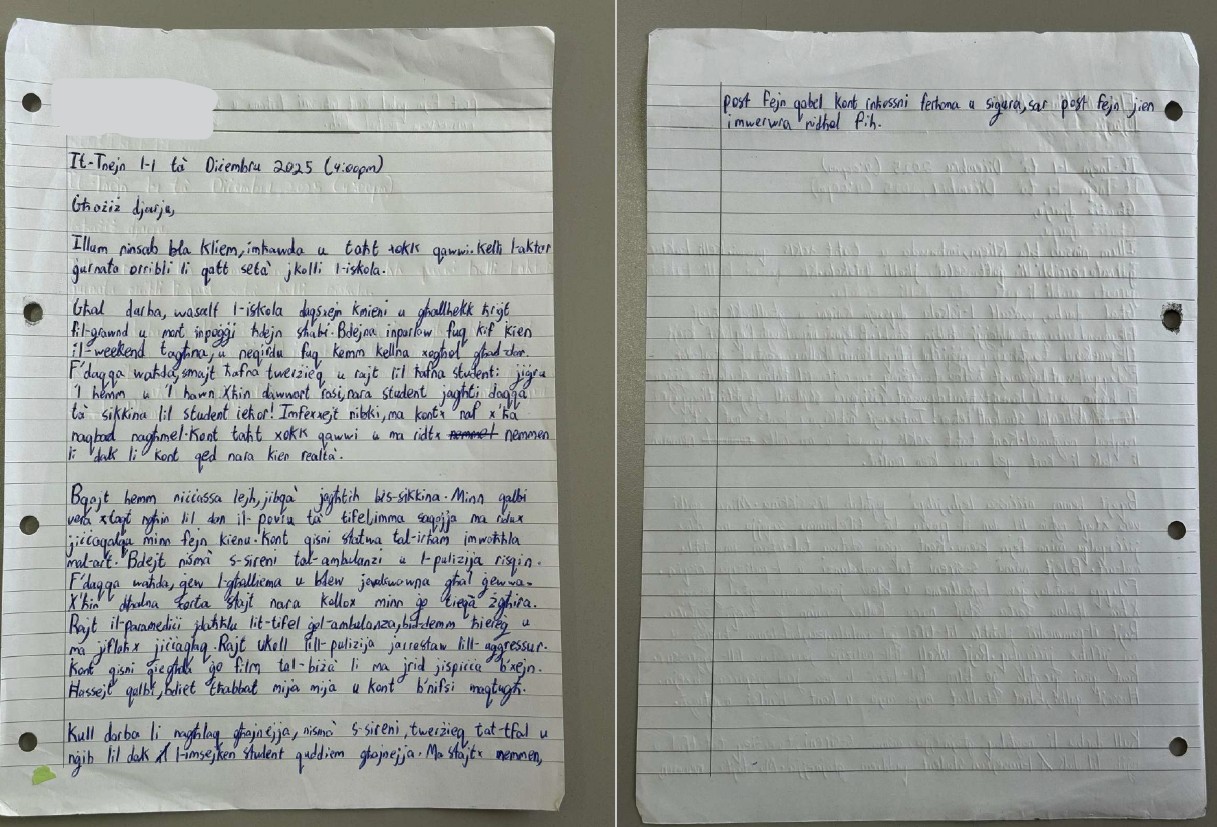 It-Tnejn l-1 ta' Diċembru 2025 (4:00pm)
Għażiż djarju,
Illum ninsab bla kliem, imħawda u taħt xokk qawwi. Kelli l-aktar
ġurnata orribli li qatt seta' jkolli l-iskola.
Għal darba, wasalt l-iskola daqsxejn kmieni u għallhekk ħriġt
fil-grawnd u mort inpoġġi ħdejn sħabi. Bdejna inparlaw fuq kif kien
il-weekend tagħna, u neqirdu fuq kemm kellna xogħol għad-dar.
F'daqqa waħda, smajt ħafna twerżieq u rajt lil ħafna studenti jiġru
'l hemm u 'l hawn. X'ħin dawwart rasi, nara student jagħti daqqa
ta' sikkina lil student ieħor! Imfexxejt nibki, ma kontx naf x'ħa
naqbad nagħmel. Kont taħt xokk qawwi u ma ridtx nemmen
li dak li kont qed nara kien realta'.
Bqajt hemm niċċassa lejh, jibqa' jagħtih bis-sikkina. Minn qalbi
vera xtaqt ngħin lil dan il-povru ta' tifel, imma saqajja ma ridux
jiċċaqalqa minn fejn kienu. Kont qisni statwa tal-irħam imwaħħla
mal-art. Bdejt nisma' s-sireni tal-ambulanzi u l-pulizija riesqin.
F'daqqa waħda, ġew l-għalliema u bdew jevakwawna għal ġewwa.
X'ħin dħalna stajt nara kollox minn ġo tieqa żgħira.
Rajt il-paramediċi jdaħħlu lit-tifel ġol-ambulanza, bid-demm ħiereġ u
ma jiflaħx jiċċaqlaq. Rajt ukoll lill-pulizija jarrestaw lill-aggressur.
Kont qisni qiegħda ġo film tal-biża' li ma jrid jispiċċa b'xejn.
Ħassejt qalbi, bdiet tħabbat mija mija u kont b'nifsi maqtugħ.
Kull darba li nagħlaq għajnejja, nisma' s-sireni, twerżieq tat-tfal u
nġib lil dak l-imsejken student quddiem għajnejja. Ma stajtx nemmen,
post fejn qabel kont inħossni ferħana u sigura, sar post fejn jien
imwerwra nidħol fih.